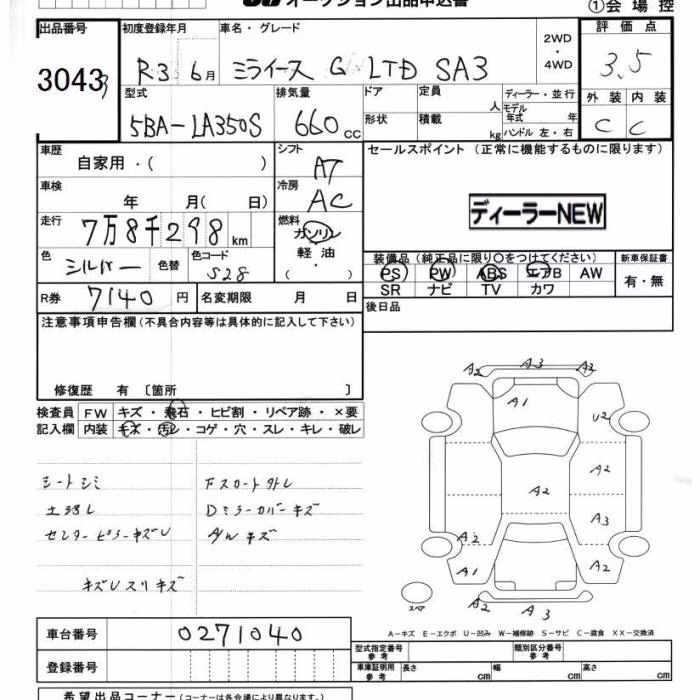 オークション出品申込書
①会場控
出品番号
30433
初度登録年月
R3 6月
車名・グレード
ミライース G LTD SA3
2WD
・
4WD
評価点
3.5
外装 内装
C C
型式
5BA-LA350S
排気量
660 cc
ドア
形状
定員 人
積載 kg
ディーラー・並行
モデル年式 年式
ハンドル 左・右
車歴
自家用・( )
シフト
AT
セールスポイント (正常に機能するものに限ります)
ディーラーNEW
車検
年 月( 日)
冷房
AC
走行
7万8千298km
燃料
ガソリン
軽油
( ・ )
色
シルバー
色替
色コード
S28
装備品 (純正品に限り〇をつけてください)
PS PW ABS エアB AW
SR ナビ TV カワ
新車保証書
有・無
R券 7140円
名変期限 月 日
後日品
注意事項申告欄 (不具合内容等は具体的に記入して下さい)
修復歴 有 〔箇所 〕
検査員
記入欄
FW キズ・飛石・ヒビ割・リペア跡・×要
内装 キズ・汚レ・コゲ・穴・スレ・キレ・破レ
シートシミ
Fスカート外レ
Dミラーカバーキズ
センターピラーキズU
A/Wキズ
キズUスリキズ
A2 A3 A2
A1
U2
A2
A2
A3
A2
A1
A2
A2 A3
スペア
A-キズ E-エクボ U-凹み W-補修跡 S-サビ C-腐食 XX-交換済
車台番号 0271040
登録番号
型式指定番号 参考
類別区分番号 参考
車庫証明用 参考 長さ cm 幅 cm 高さ cm
希望出品コーナー (コーナーは各会場により異なります。)